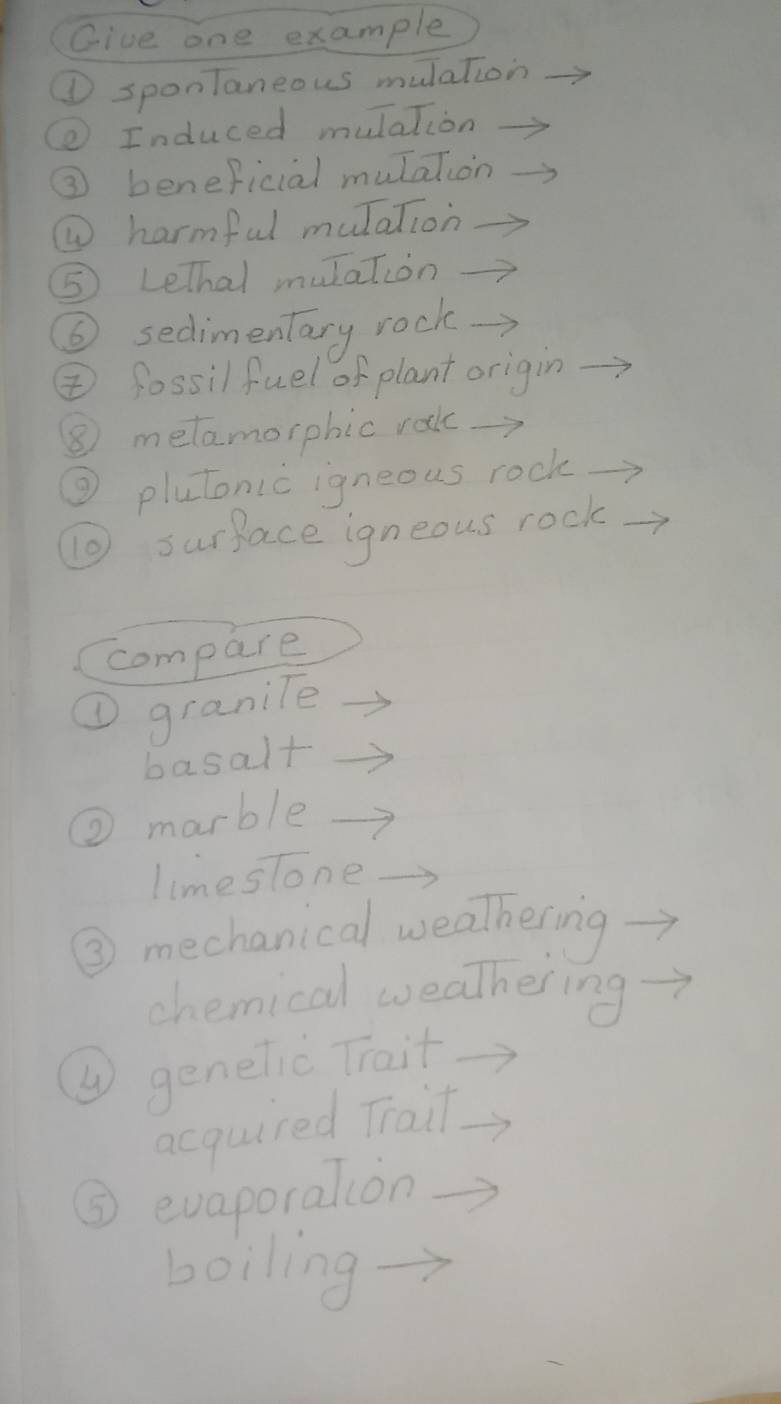 Give one example
① spontaneous mutation →
② Induced mutation →
③ beneficial mutation →
④ harmful mutation →
⑤ Lethal mutation →
⑥ sedimentary rock →
⑦ fossil fuel of plant origin →
⑧ metamorphic rock →
⑨ plutonic igneous rock →
⑩ surface igneous rock →
compare
① granite →
basalt →
② marble →
limestone →
③ mechanical weathering →
chemical weathering →
④ genetic Trait →
acquired Trait →
⑤ evaporation →
boiling →